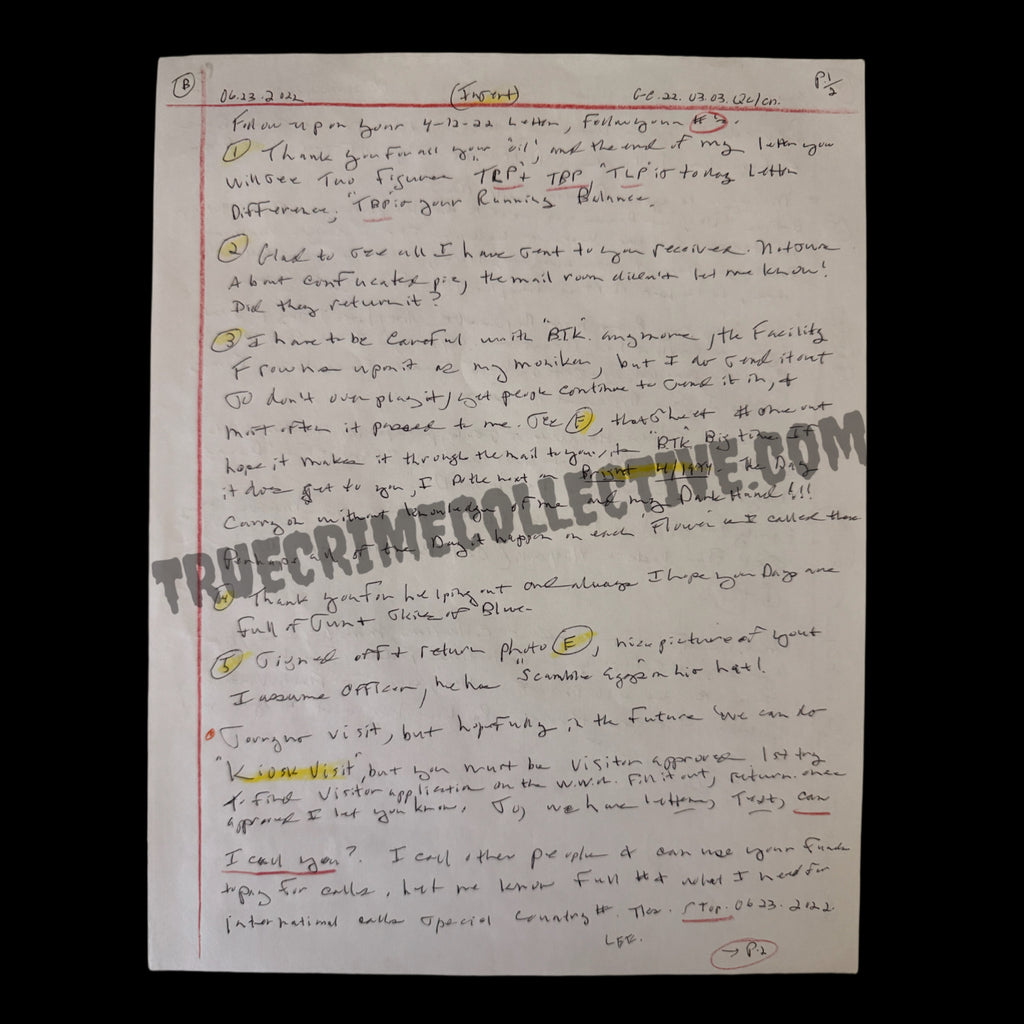 B 06.23.2022 (Insert) GC.22.03.03. P.1/2
Follow up on your 4-12-22 Letter, Follow your #'s.
1 Thank you for all your "oil", and the end of my letter you
will see Two Figures TLP + TBP "TLP" is today Letter
Difference, "TBP" is your Running Balance.
2 Glad to see all I have sent to you received. Not sure
About confiscated pic, the mail room didn't let me know!
Did they return it?
3 I have to be careful with "BTK" anymore, the Facility
Frowns upon it as my moniker, but I do send it out
So don't over play it, yet people continue to send it in, &
most often it passes to me. See E, that sheet # one out
hope it makes it through the mail to you, its "BTK" Big time If
it does get to you, I the next on 4/1974. The Day
Carry on without knowledge of me and my Dark Hand!!!
Perhaps all of the Days happen on each 'Flower' as I called them
4 Thank you for helping out and always I hope your Days are
full of Sun & Skies of Blue.
5 Signed off & return photo E, nice picture of you
I assume officer, he has "Scramble Eggs" on his hat!
Sorry no visit, but hopefully in the future we can do
"Kiosk Visit", but you must be visitor approved 1st try
& find Visitor application on the W.W.W. Fill it out, return. once
approved I let you know. So, we have letters, Text, can
I call you?. I call other people & can use your funds
to pay for calls, let me know full # & what I need for
international calls special country #. Thx. STOP. 06.23.2022.
→ P.2
TRUECRIMECOLLECTIVE.COM